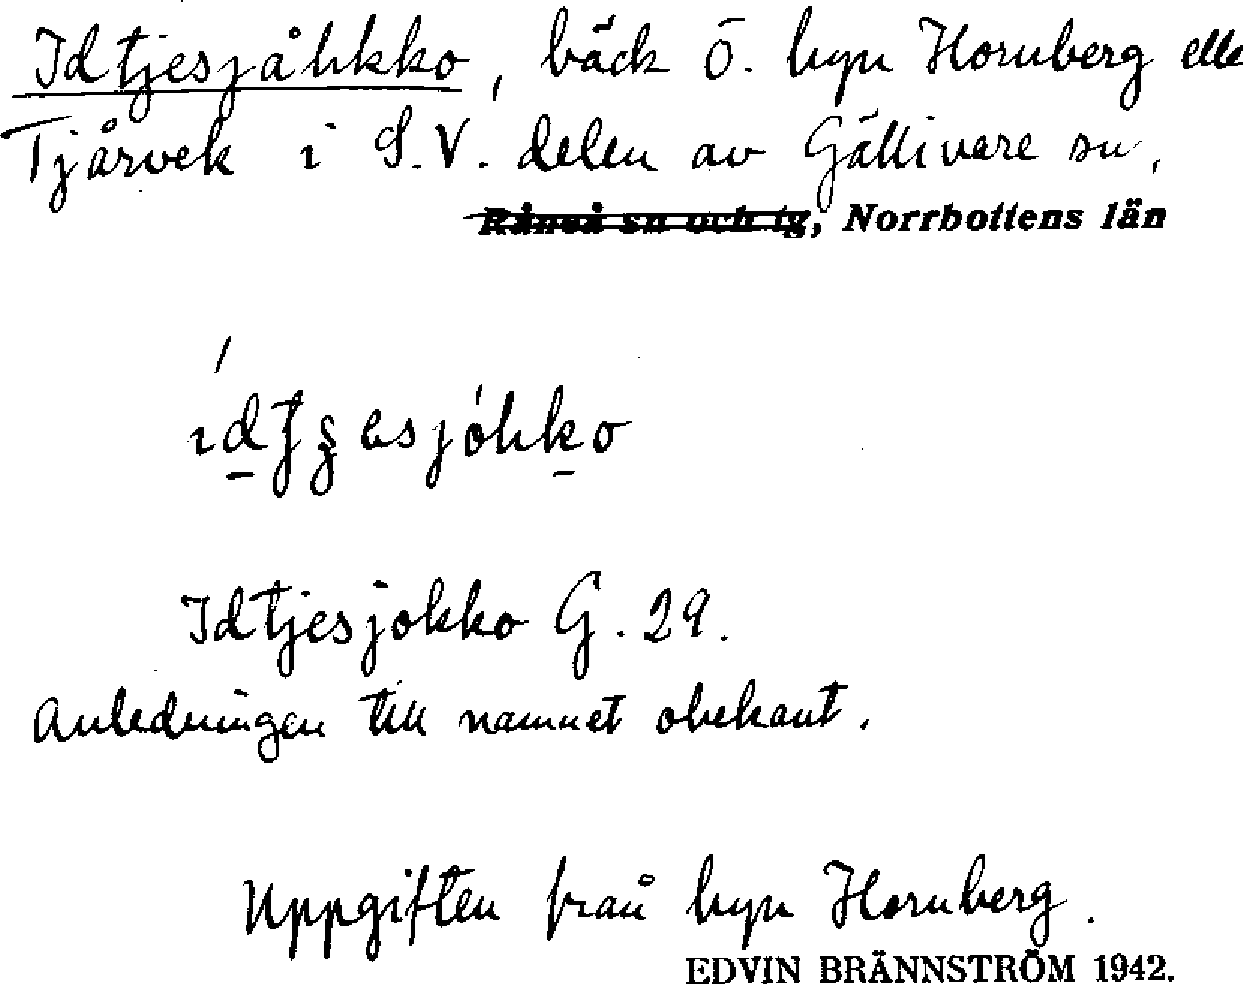 Idtjesjåhkko, bäck ö. byn Hornberg elle
Tjårvek i S.V. delen av Gällivare sn,
Råneå sn och tg, Norrbottens län
ídtjʒesjóhko
Idtjesjokko G. 29.
Anledningen till namnet obekant.
Uppgiften från byn Hornberg.
EDVIN BRÄNNSTRÖM 1942.